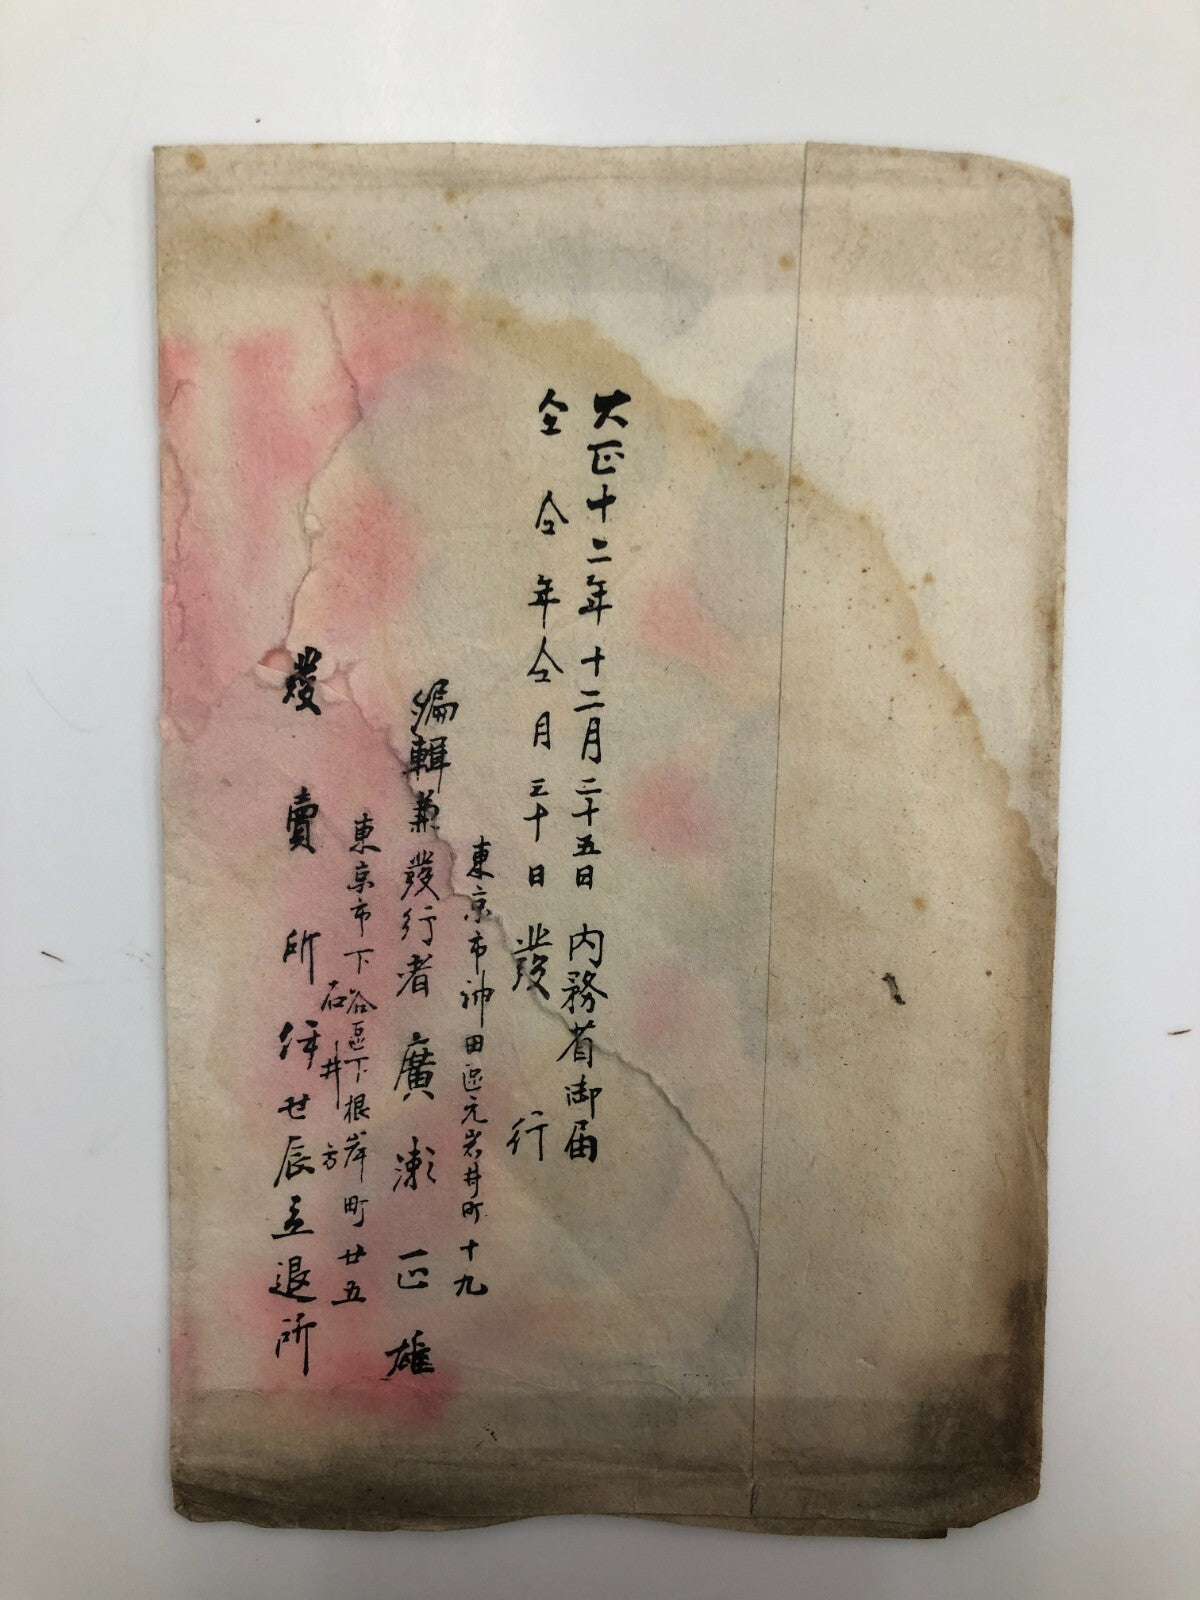 大正十二年十二月二十五日内務省御届
仝仝年仝月三十日發行
東京市神田區元岩井町十九
編輯兼發行者廣瀬正雄
東京市下谷區下根岸町廿五
石井方
發賣所伊世辰立退所